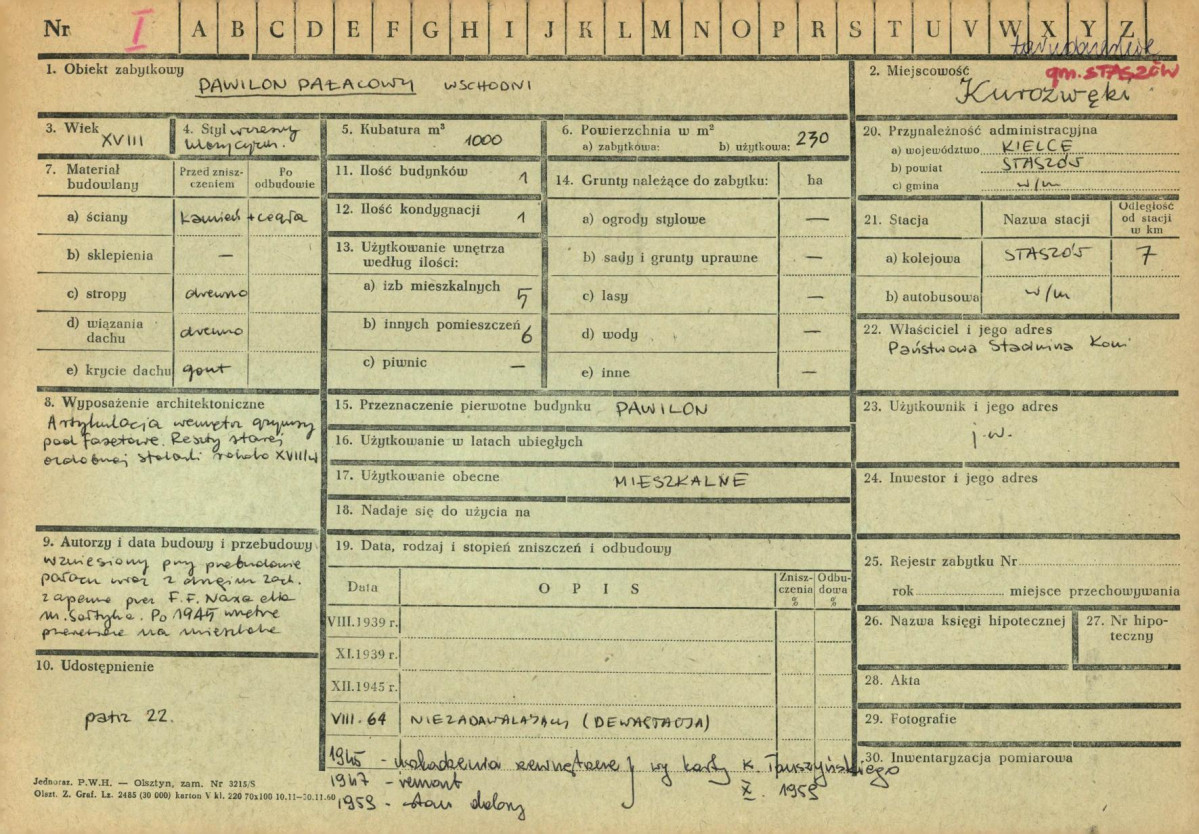 Nr I A B C D E F G H I J K L M N O P R S T U V W X Y Z
1. Obiekt zabytkowy
PAWILON PAŁACOWY WSCHODNI
2. Miejscowość
gm. STASZÓW
Kurozwęki
3. Wiek
XVIII
4. Styl wczesny
klasycyzm.
5. Kubatura m³
1000
6. Powierzchnia w m²
a) zabytkowa: b) użytkowa: 230
7. Materiał budowlany
Przed zniszczeniem
Po odbudowie
a) ściany kamień + cegła
b) sklepienia —
c) stropy drewno
d) wiązania dachu drewno
e) krycie dachu gont
8. Wyposażenie architektoniczne
Artykulacja wewnątrz gzymsy
pod fasetowe. Reszty starej
ozdobnej stolarki XVIII w
9. Autorzy i data budowy i przebudowy
wzniesiony przy przebudowie
pałacu wraz z drugim zach.
zapewne przez F.F. Naxa dla
m. Sołtyka. Po 1945 wnętrze
na mieszkale
10. Udostępnienie
patrz 22.
11. Ilość budynków 1
12. Ilość kondygnacji 1
13. Użytkowanie wnętrza
według ilości:
a) izb mieszkalnych 5
b) innych pomieszczeń 6
c) piwnic —
14. Grunty należące do zabytku: ha
a) ogrody stylowe —
b) sady i grunty uprawne —
c) lasy —
d) wody —
e) inne —
15. Przeznaczenie pierwotne budynku PAWILON
16. Użytkowanie w latach ubiegłych
17. Użytkowanie obecne MIESZKALNE
18. Nadaje się do użycia na
19. Data, rodzaj i stopień zniszczeń i odbudowy
Data OPIS Zniszczenia % Odbudowa %
VIII.1939 r.
XI.1939 r.
XII.1945 r.
VIII.64 NIEZADAWALAJĄCY (DEWASTACJA)
1945 - uszkodzenia zewnętrzne } wg karty K. Tauszyńskiego
1947 - remont X. 1959
1959 - stan dobry
20. Przynależność administracyjna
a) województwo KIELCE
b) powiat STASZÓW
c) gmina w/m
21. Stacja Nazwa stacji Odległość od stacji w km
a) kolejowa STASZÓW 7
b) autobusowa w/m
22. Właściciel i jego adres
Państwowa Stadnina Koni
23. Użytkownik i jego adres
j.w.
24. Inwestor i jego adres
25. Rejestr zabytku Nr
rok miejsce przechowywania
26. Nazwa księgi hipotecznej
27. Nr hipoteczny
28. Akta
29. Fotografie
30. Inwentaryzacja pomiarowa
Jednoraz. P.W.H. — Olsztyn, zam. Nr 3215/S
Olszt. Z. Graf. Lz. 2485 (30 000) karton V kl. 220 70x100 10.11—30.11.60